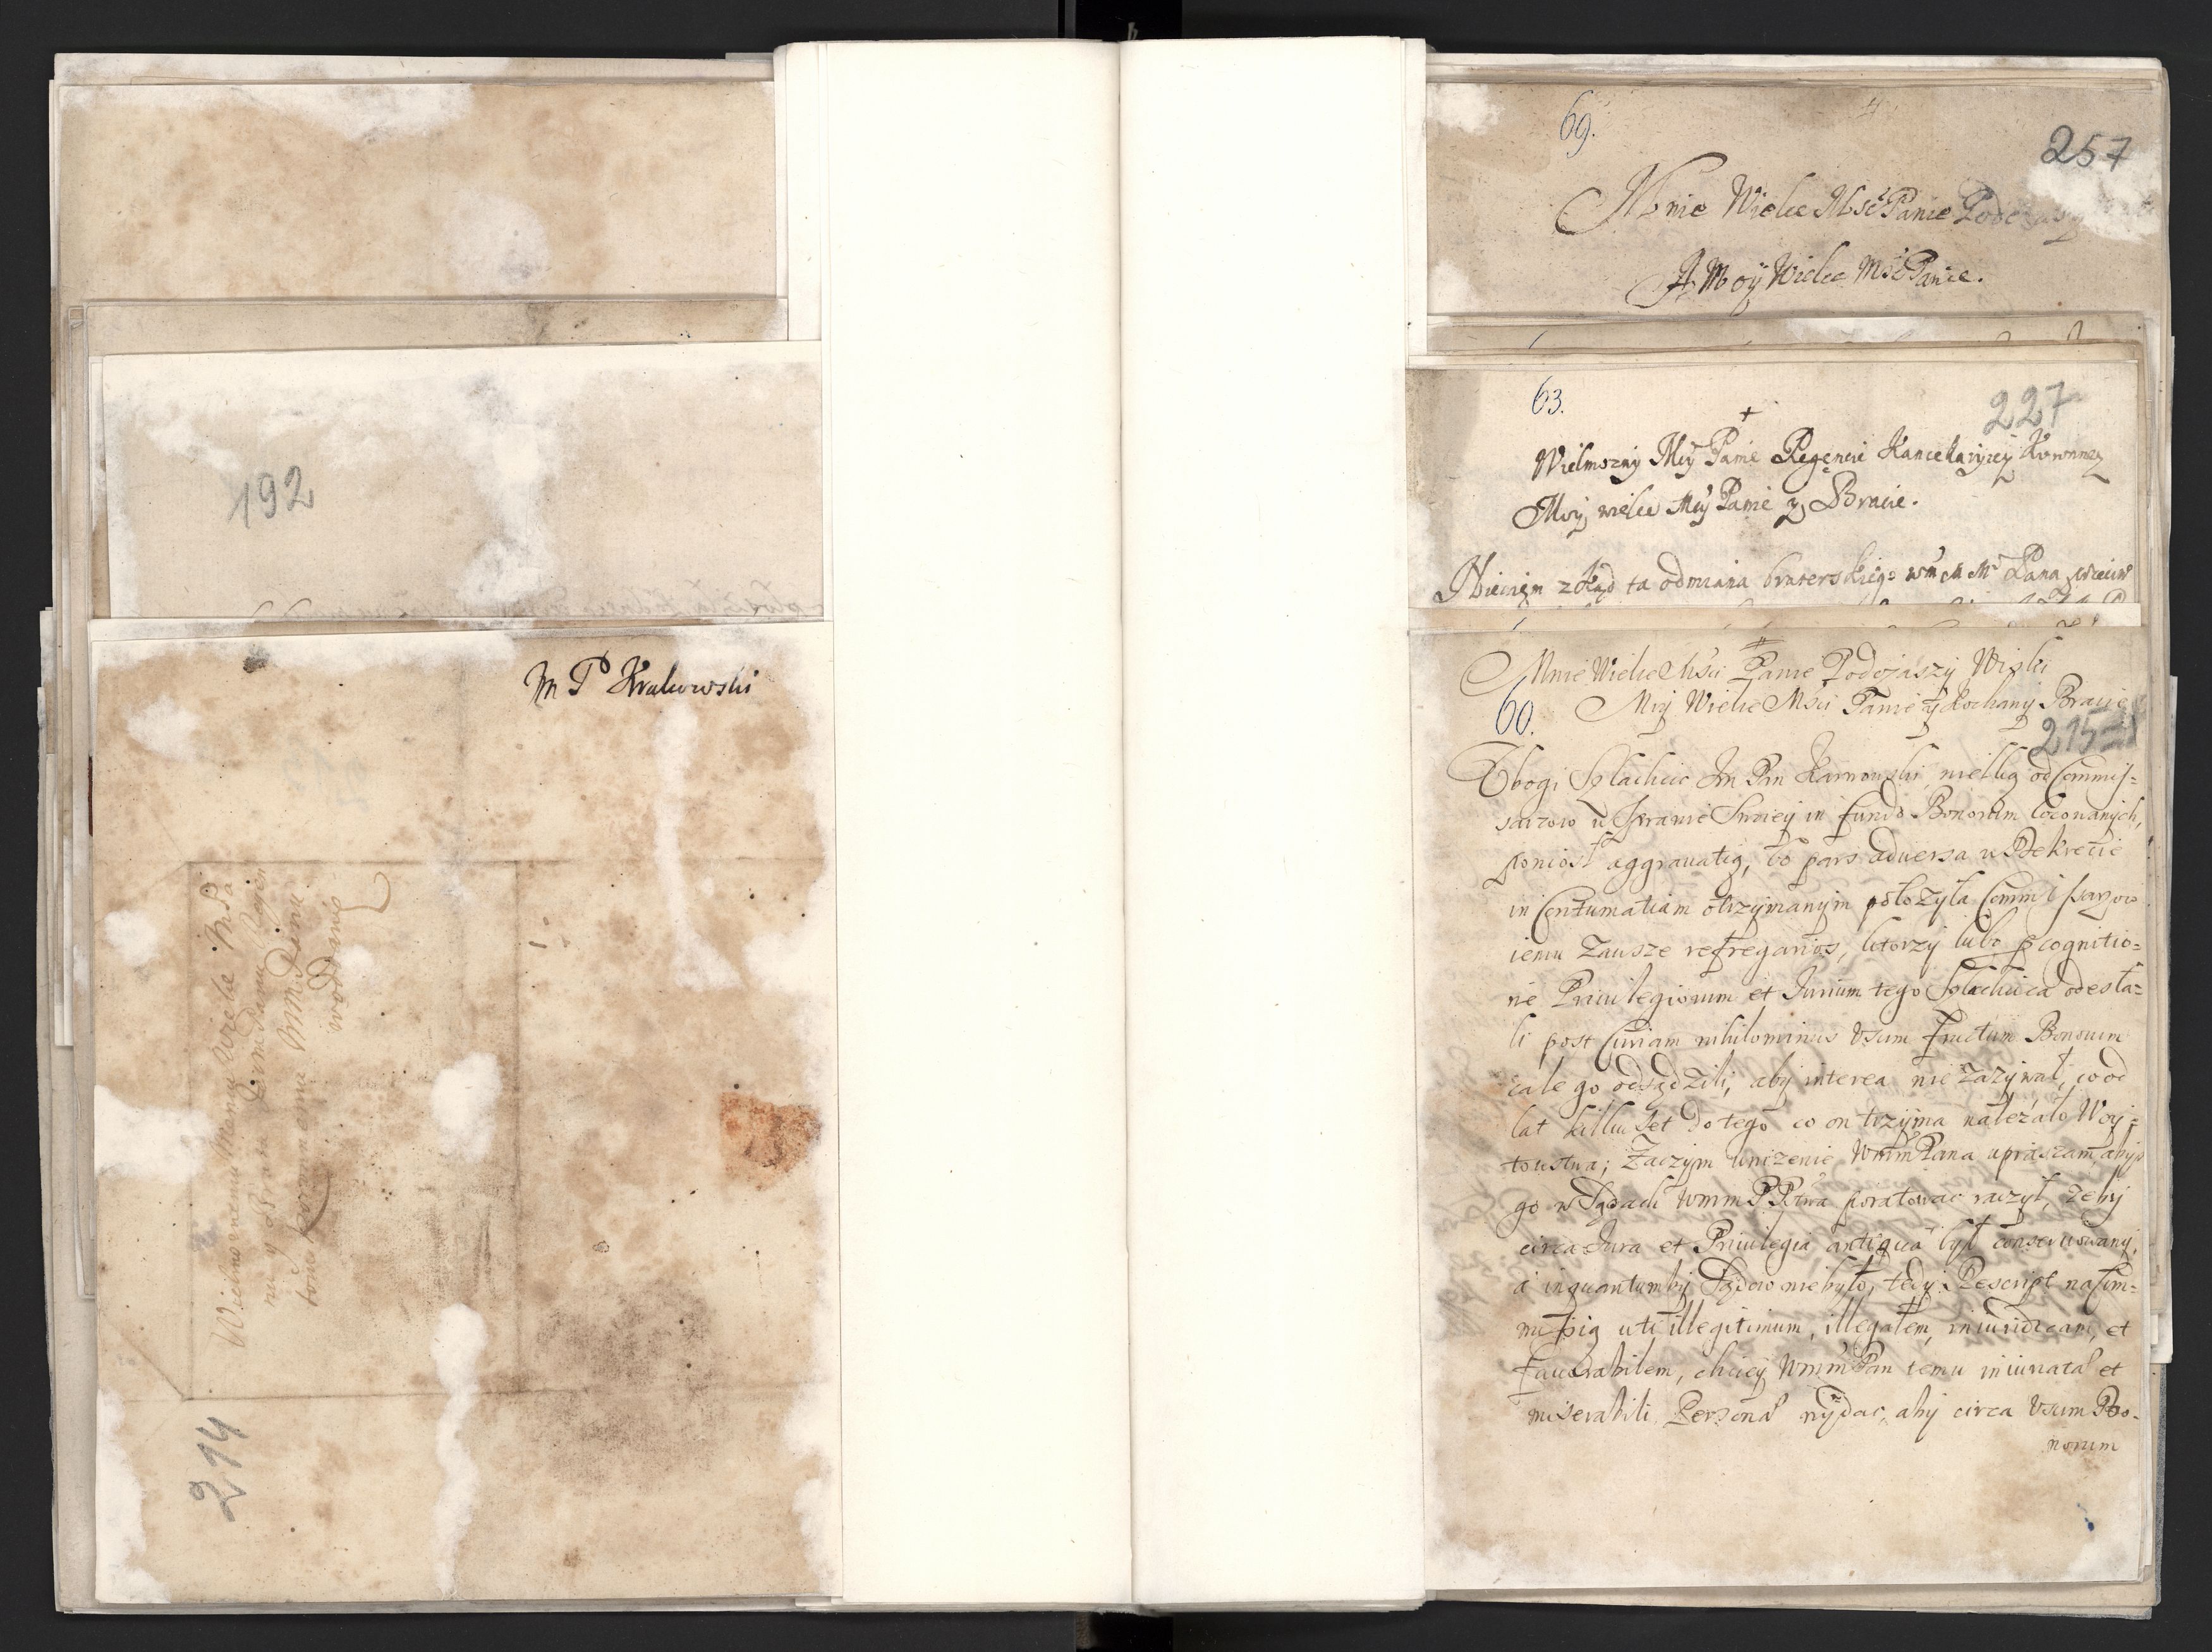 192
M P Krakowski
Wielmożnemu Memu Wielce M Pa
nu y Bratu Panu Regen
towi koronnemu MM Panu
214
69.
257
Mnie Wielce Msć Panie Podczaszy
A Moÿ Wielce Mść Panie.
63.
227
Wielmozny Mcy Panie Regencie Kancellaryiey Koronney
Moy wielce Mcy Panie y Bracie.
Niewiem zkąd ta odmiana braterskiego Pana
Mnie Wielce Msci Panie Podczaszy Wizki
60. Moy Wielce Msci Panie y Kochany Bracie
215
Vbogi Szlachcic Im Pan Karnowski, od Commis=
sarzow w Sprawie Swoiey in fundo Bonorum locowanych,
poniosł aggrauatią, bo pars aduersa w Dekrecie
in Contumatiam otrzymanym położyła Commissarzow
iemu Zausze refregarios, ktorzy lubo p cognitio=
ne Priuilegiorum et Iurium tego Szlachcica odesła=
li post Curiam nihilominus Vsum fructum Bonorum
cale go odsądzili, aby interea nie Zazywał, co od
lat kilku set do tego co on trzyma nalezało Woy=
tostwa; Zaczym unizenie WmmPana upraszam, abys
go w Sądach Wmm PPtwa poratowac raczył, zeby
circa Iura et Priuilegia antiqua był conseruowany,
a inquantumby Sądow niebyło, tedy Rescript na Com=
missią uti illegitimum, illegalem, iniuridicam, et
fauorabilem, chciey Wmm Pan temu iniuriata et
miserabili Persona wydac, aby circa Vsum Bo-
norum